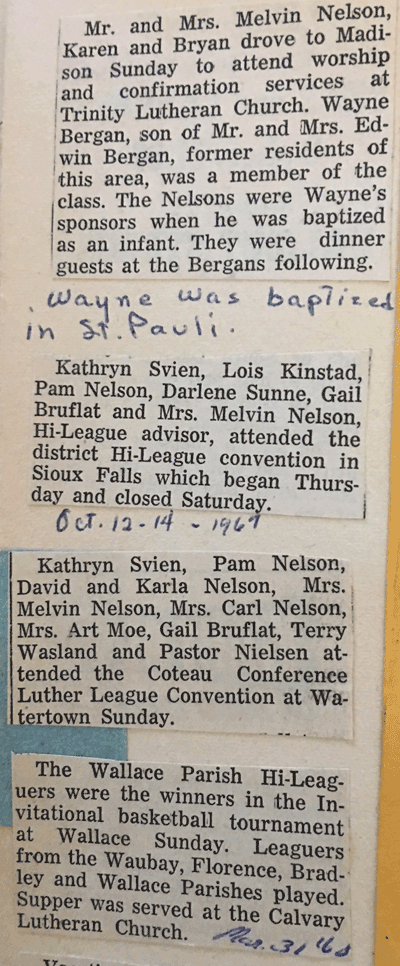 Mr. and Mrs. Melvin Nelson,
Karen and Bryan drove to Madi-
son Sunday to attend worship
and confirmation services at
Trinity Lutheran Church. Wayne
Bergan, son of Mr. and Mrs. Ed-
win Bergan, former residents of
this area, was a member of the
class. The Nelsons were Wayne's
sponsors when he was baptized
as an infant. They were dinner
guests at the Bergans following.
Wayne was baptized
in St. Pauli.
Kathryn Svien, Lois Kinstad,
Pam Nelson, Darlene Sunne, Gail
Bruflat and Mrs. Melvin Nelson,
Hi-League advisor, attended the
district Hi-League convention in
Sioux Falls which began Thurs-
day and closed Saturday.
Oct. 12-14 - 1967
Kathryn Svien, Pam Nelson,
David and Karla Nelson, Mrs.
Melvin Nelson, Mrs. Carl Nelson,
Mrs. Art Moe, Gail Bruflat, Terry
Wasland and Pastor Nielsen at-
tended the Coteau Conference
Luther League Convention at Wa-
tertown Sunday.
The Wallace Parish Hi-Leag-
uers were the winners in the In-
vitational basketball tournament
at Wallace Sunday. Leaguers
from the Waubay, Florence, Brad-
ley and Wallace Parishes played.
Supper was served at the Calvary
Lutheran Church. Mar. 31